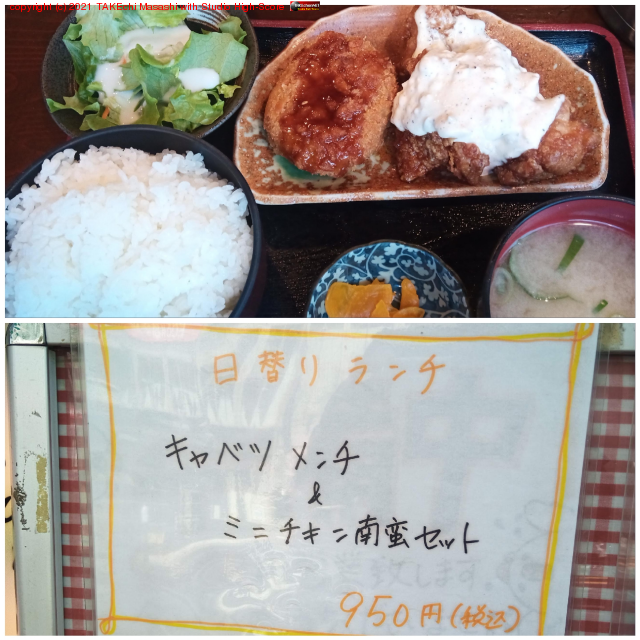 copyright (c) 2021 TAKEchi Masashi with Studio High-Score
日替りランチ
キャベツメンチ
&
ミニチキン南蛮セット
950円(税込)